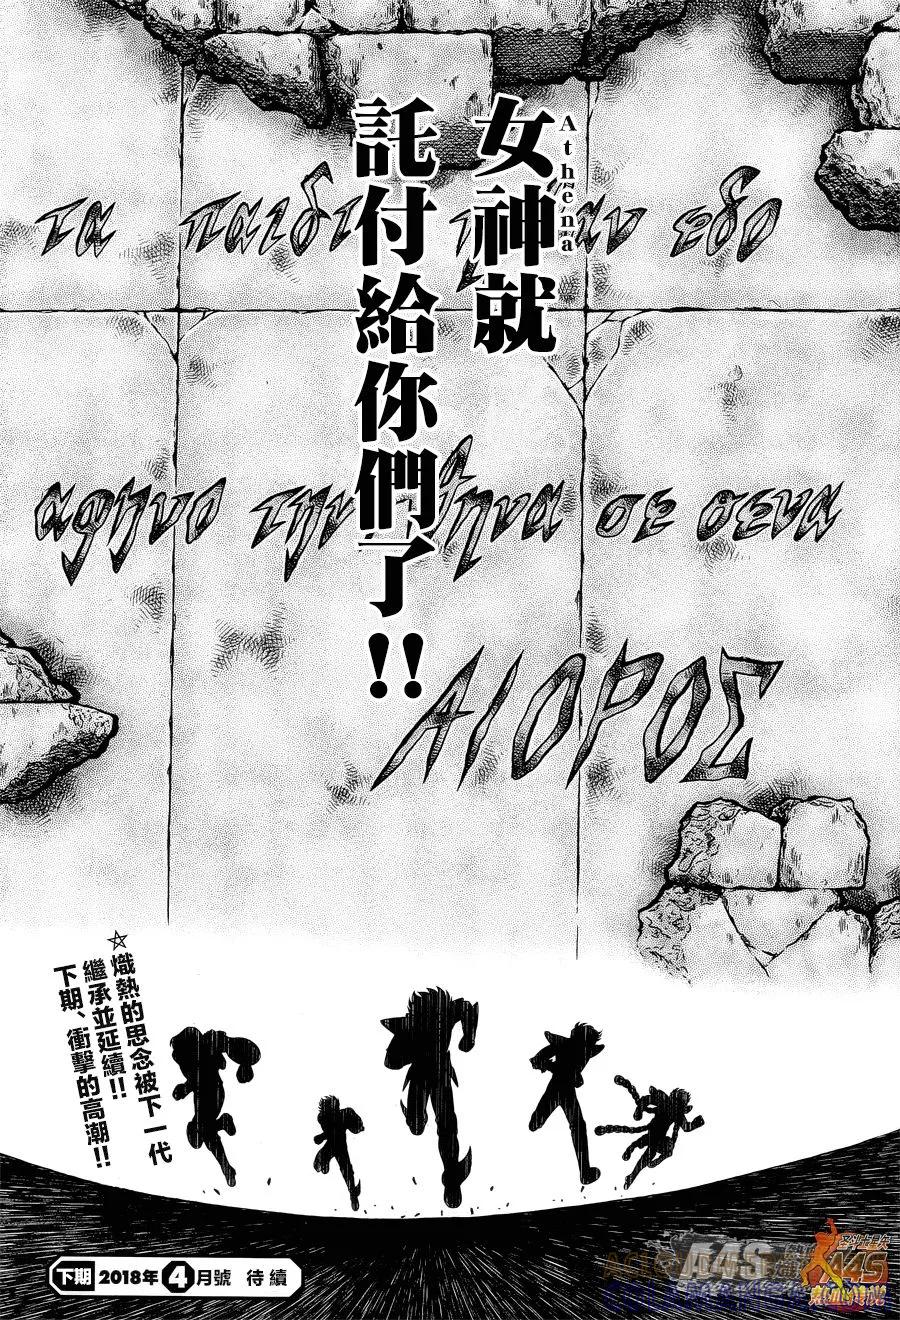 女神就
Athena
託付給你們了!!
τα παιδι
αν εδο
αφηνο την
ηνα σε σενα
ΑΙΟΡΟΣ
☆熾熱的思念被下一代
繼承並延續!!
下期、衝擊的高潮!!
下期 2018年4月號 待續
A4S
A4S